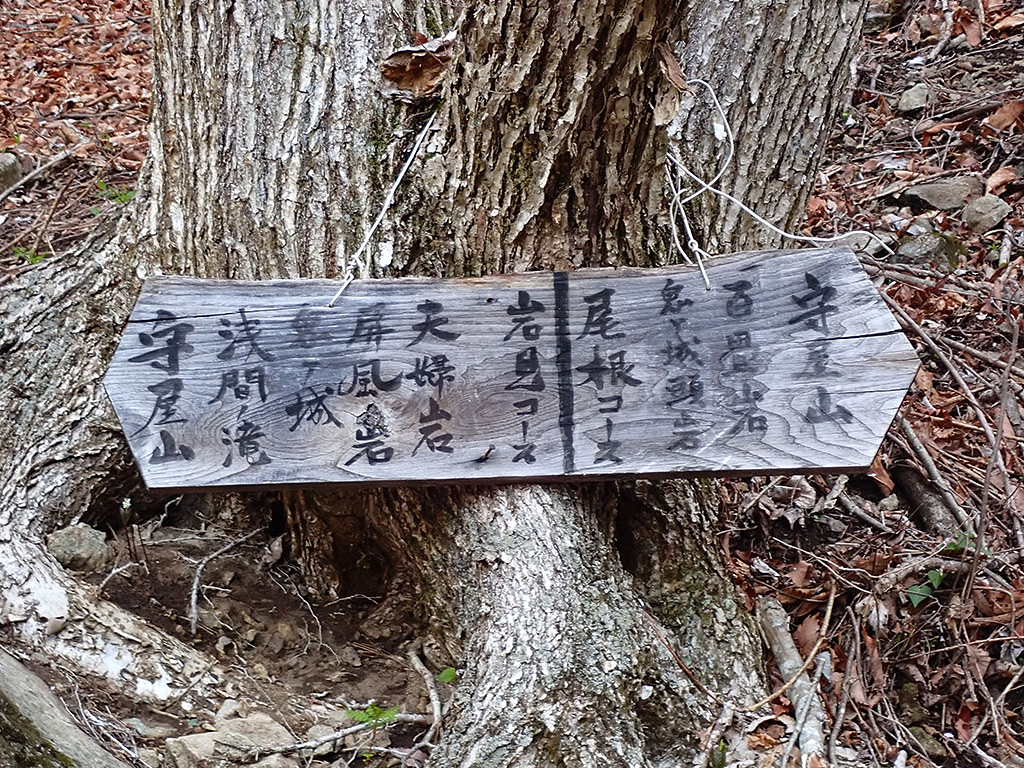 守屋山
百畳岩
鬼ヶ城頭岩
尾根コース
岩見コース
夫婦岩
屏風岩
鬼ヶ城
浅間ノ滝
守屋山